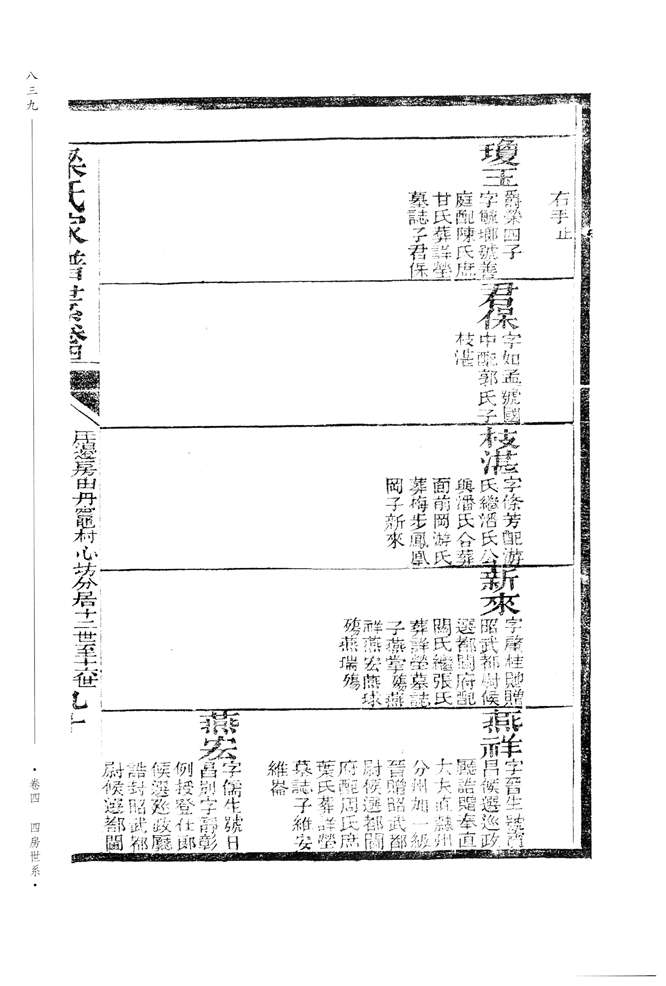 八三九
右手止
瓊玉
爵榮四子
字毓瑯號善
庭配陳氏庶
甘氏葬詳塋
墓誌子君保
君保
字如孟號國
中配郭氏子
枝湛
枝湛
字條芳配游
氏繼潘氏公
與潘氏合葬
面前岡游氏
葬梅步鳳凰
岡子新來
新來
字啟桂貤贈
昭武都尉候
選都閫府配
關氏繼張氏
葬詳塋墓誌
子燕堂殤燕
祥燕宏燕球
殤燕瑞殤
燕祥
字晉生號
昌候選巡政
廳誥贈奉直
大夫直隸州
分州加一級
晉贈昭武都
尉候選都閫
府配周氏庶
葉氏葬詳塋
墓誌子維安
維崙
燕宏
字儒生號日
昌別字壽彰
例授登仕郎
候選巡政廳
誥封昭武都
尉候選都閫
梁氏家譜世系卷四
庄邊房由丹竈村心坊分居十二世至十六世
九十
卷四 四房世系